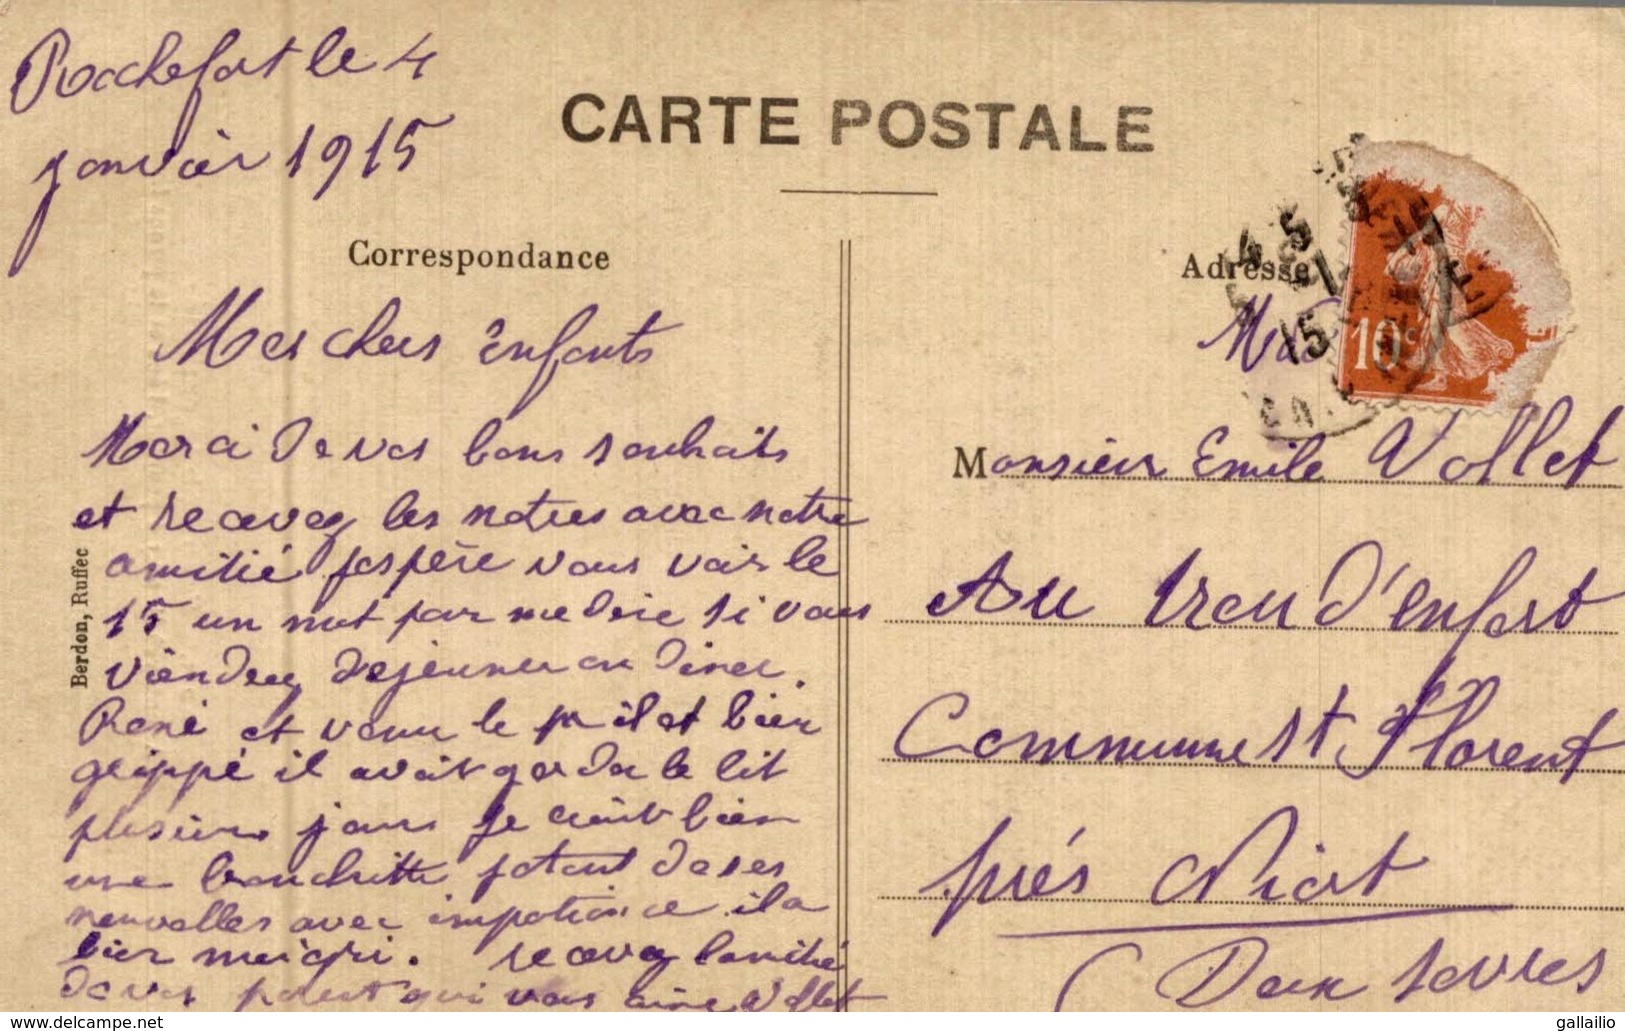 Rochefort le 4
janvier 1915
CARTE POSTALE
Correspondance
Adresse
Mes chers Enfants
Merci de vos bons souhaits
et recevez les notres avec notre
amitié jespère vous voir le
15 un mot par me dire si vous
viendez dejeuner ou diner.
René et venu le il et bien
grippé il avait garder le lit
plusieurs jours je craint bien
une bronchitte jatent de ses
nouvelles avec impatience il a
bien maigri. recevez lamitié
de vos parent qui vous aime Vollet
Berdon, Ruffec
10c
15
Monsieur Emile Vollet
Au Treu d'enfert
Commune St Florent
prés Niort
(Deux Sevres
gallailio
www.delcampe.net